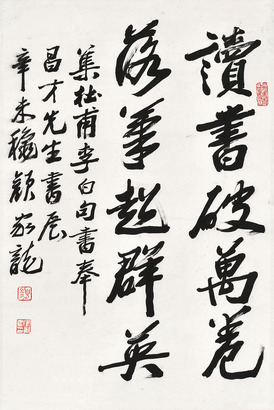 讀書破萬卷
落筆超群英
集杜甫李白句書奉
昌才先生書展
辛未穐顏家龍